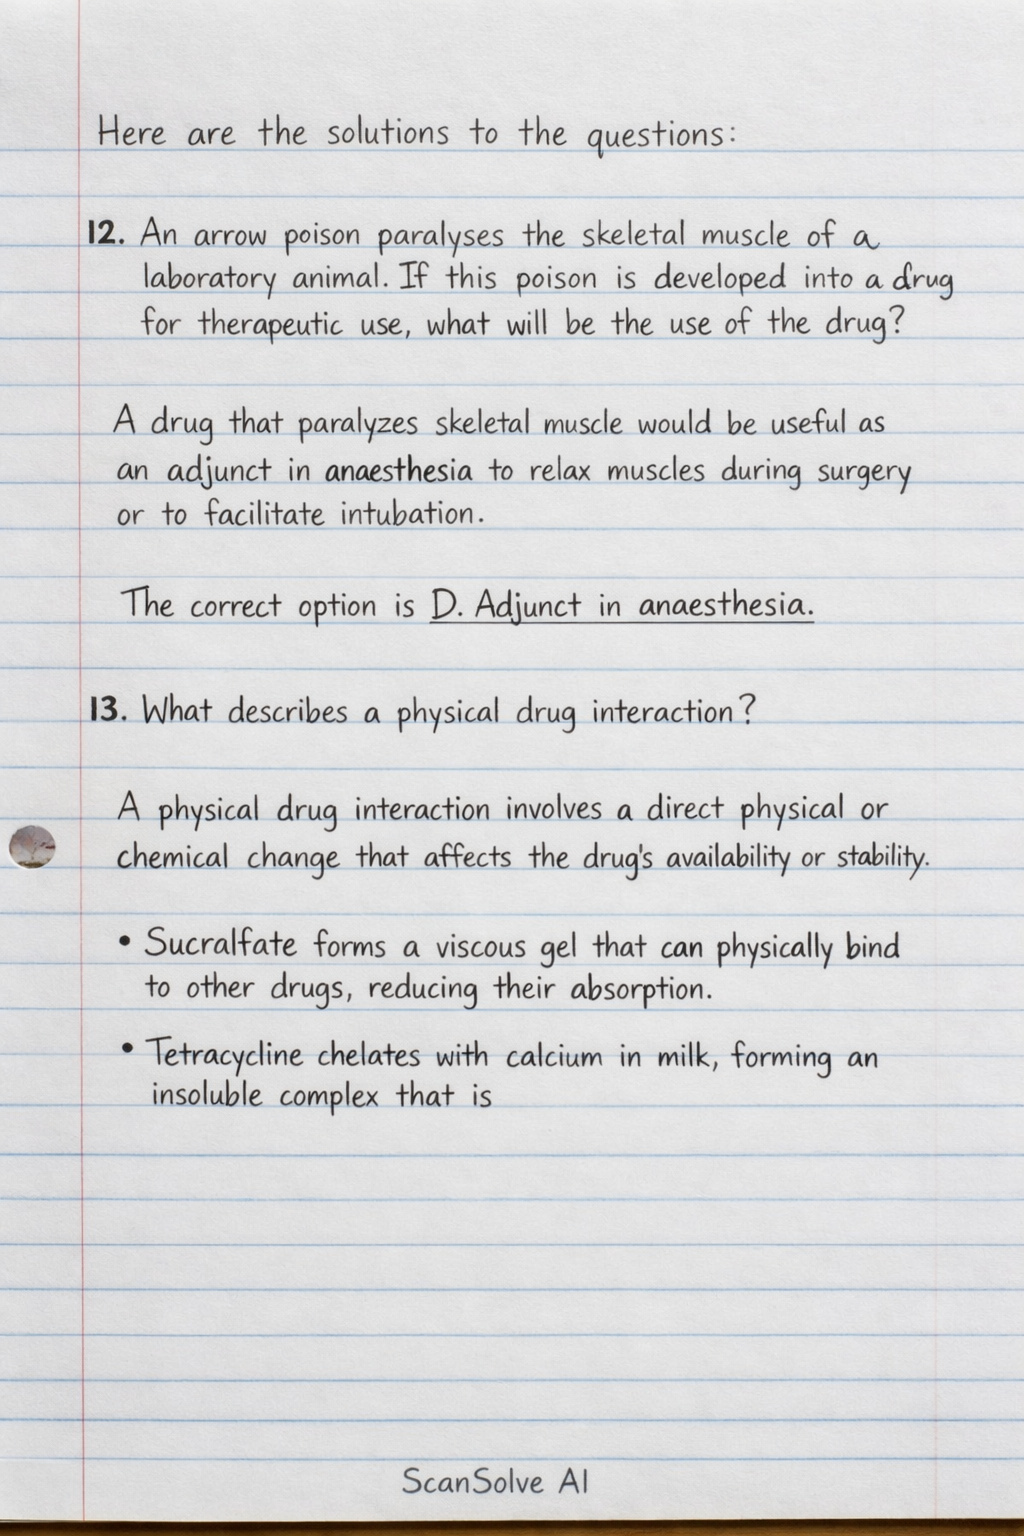 Here are the solutions to the questions:
12. An arrow poison paralyses the skeletal muscle of a
laboratory animal. If this poison is developed into a drug
for therapeutic use, what will be the use of the drug?
A drug that paralyzes skeletal muscle would be useful as
an adjunct in anaesthesia to relax muscles during surgery
or to facilitate intubation.
The correct option is D. Adjunct in anaesthesia.
13. What describes a physical drug interaction?
A physical drug interaction involves a direct physical or
chemical change that affects the drug's availability or stability.
• Sucralfate forms a viscous gel that can physically bind
to other drugs, reducing their absorption.
• Tetracycline chelates with calcium in milk, forming an
insoluble complex that is
ScanSolve AI